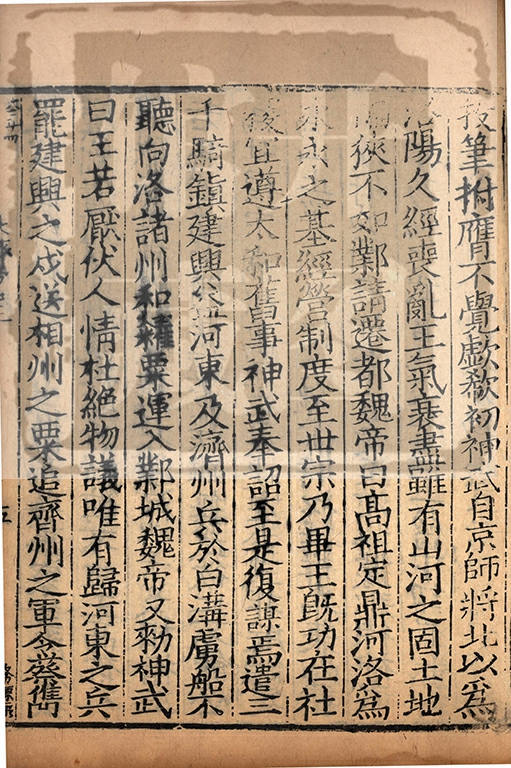 投筆拊膺不覺歔欷初神武自京師將北以爲
洛陽久經喪亂王氣衰盡雖有山河之固土地
褊狹不如鄴請遷都魏帝曰髙祖定鼎河洛爲
永永之基經營制度至世宗乃畢王旣功在社
稷宜遵太和舊事神武奉詔至是復謀焉遣三
千騎鎮建興益河東及濟州兵於白溝虜船不
聽向洛諸州和糴粟運入鄴城魏帝又勑神武
曰王若厭伏人情杜絕物議唯有歸河東之兵
罷建興之戍送相州之粟追齊州之軍令蔡雋